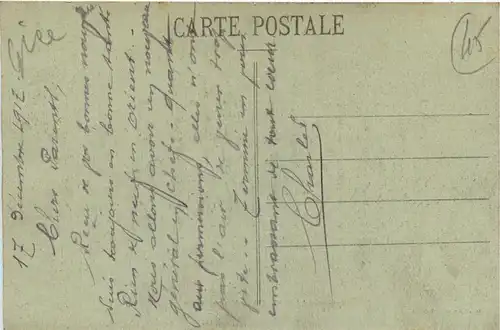 CARTE POSTALE
17 décembre 1917
Chers Parents,
Rien de vos bonnes nouvelles
suis toujours en bonne santé
Rien de neuf en Orient.
Nous allons avoir un nouveau
général en chef. Quant
aux permissions, elles n'ont
pas l'air de gazer trop
vite. Termine en vous
embrassant de tout coeur
Charles
45